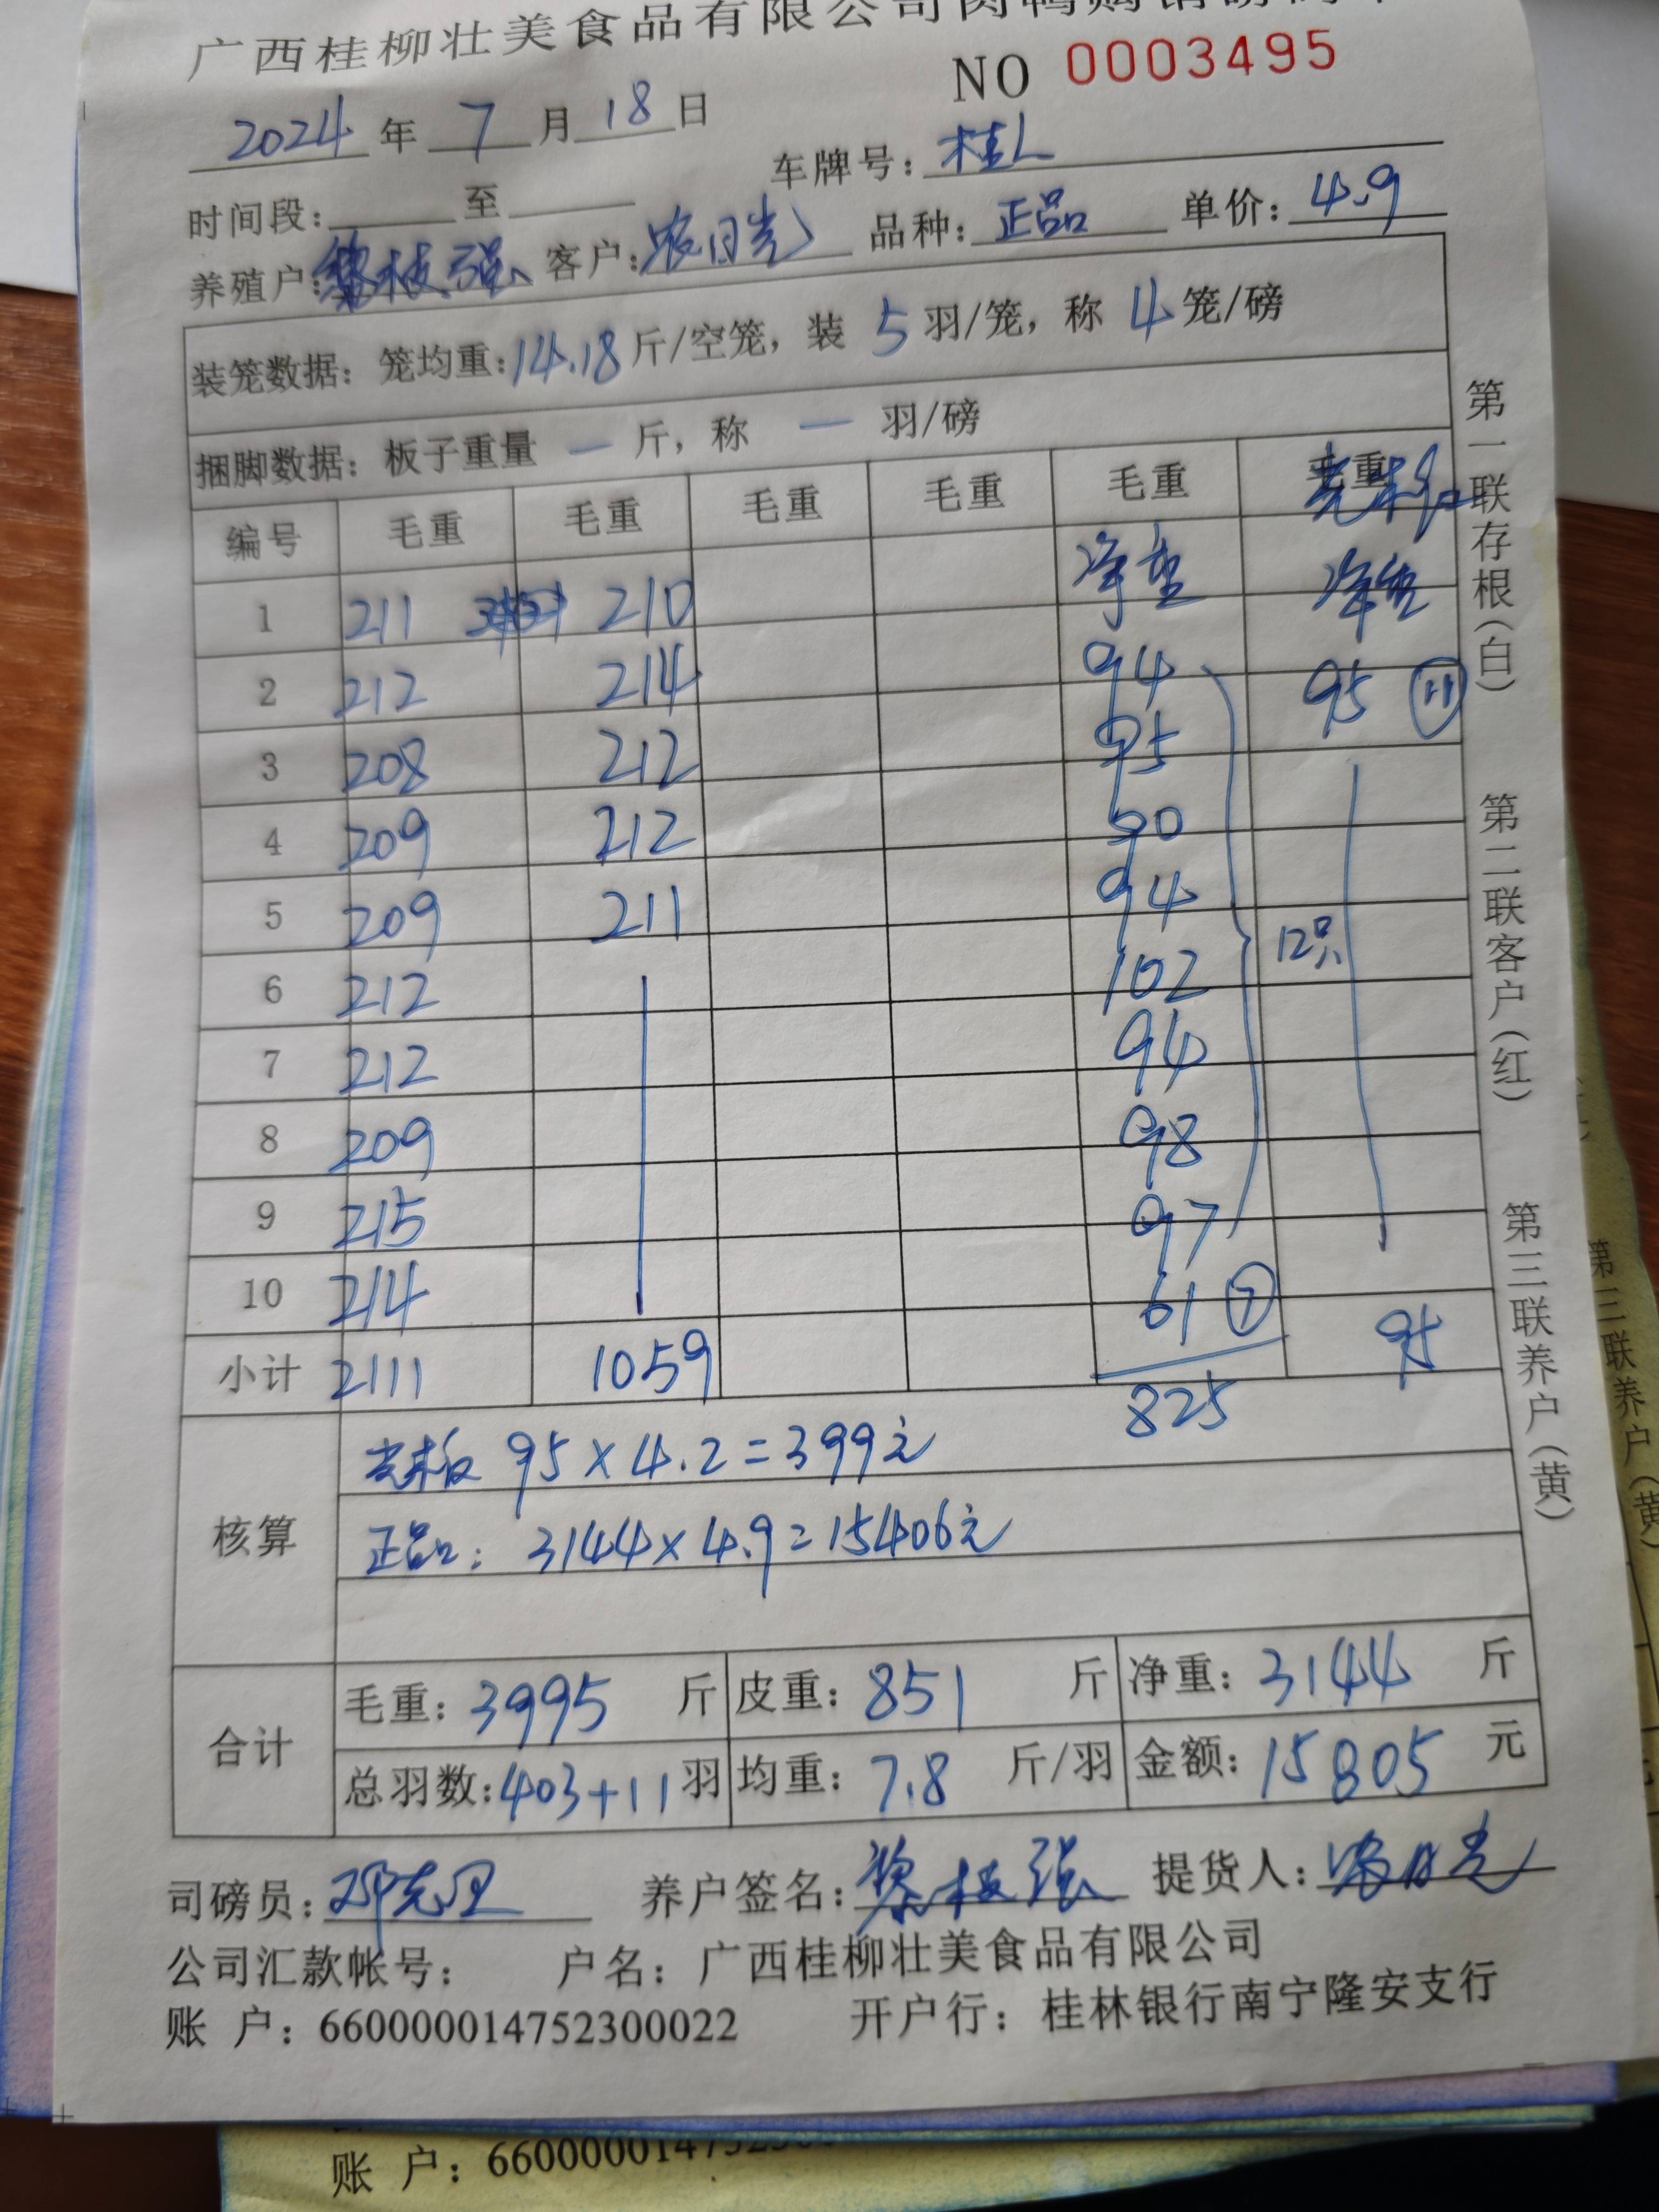 广西桂柳壮美食品有限公司肉鸭购销磅码单
NO 0003495
2024 年 7 月 18 日
车牌号: 桂L
时间段: 至
养殖户: 黎枝强 客户: 农日光 品种: 正品 单价: 4.9
装笼数据: 笼均重: 14.18 斤/空笼, 装 5 羽/笼, 称 4 笼/磅
捆脚数据: 板子重量 一 斤, 称 一 羽/磅
编号 毛重 毛重 毛重 毛重 毛重 毛重
净重 净重
1 211 210
2 212 214 94 95 11
3 208 212 95
4 209 212 90
5 209 211 94
6 212 102 12只
7 212 94
8 209 98
9 215 97
10 214 61 7
小计 2111 1059 825 95
核算
95×4.2=399元
正品: 3144×4.9=15406元
合计
毛重: 3995 斤 皮重: 851 斤 净重: 3144 斤
总羽数: 403+11 羽 均重: 7.8 斤/羽 金额: 15805 元
司磅员: 养户签名: 黎枝强 提货人: 农日光
公司汇款帐号: 户名: 广西桂柳壮美食品有限公司
账 户: 660000014752300022 开户行: 桂林银行南宁隆安支行
第一联存根(白) 第二联客户(红) 第三联养户(黄)
第三联养户(黄)
账 户: